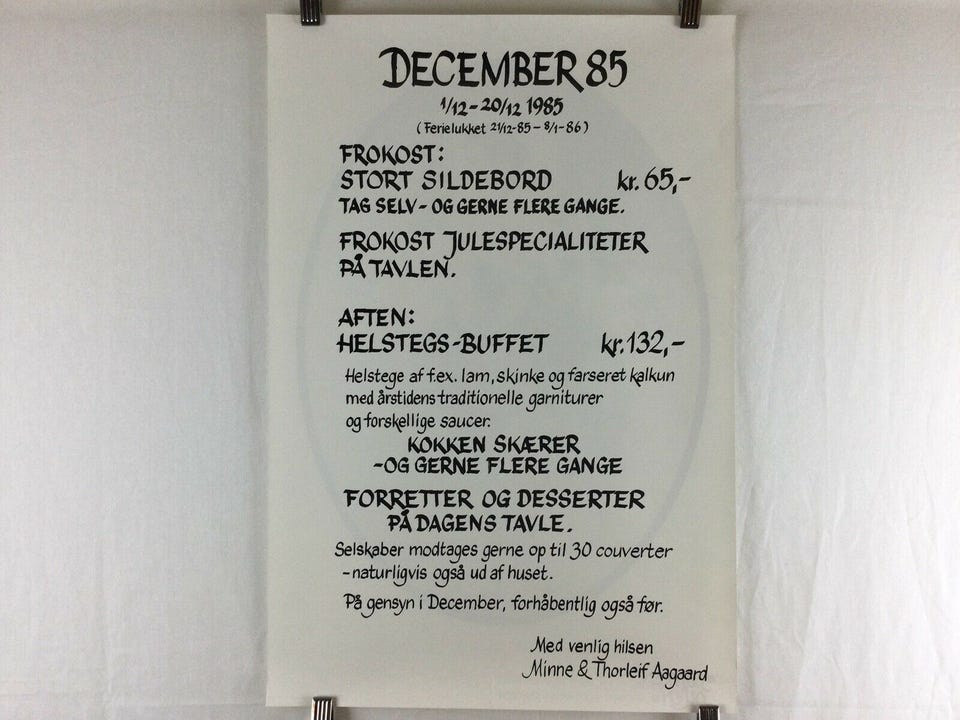 DECEMBER 85
1/12-20/12 1985
(Ferielukket 21/12-85 - 8/1-86)
FROKOST:
STORT SILDEBORD kr. 65,-
TAG SELV - OG GERNE FLERE GANGE.
FROKOST JULESPECIALITETER
PÅ TAVLEN.
AFTEN:
HELSTEGS-BUFFET kr. 132,-
Helstege af f.ex. lam, skinke og farseret kalkun
med årstidens traditionelle garniturer
og forskellige saucer.
KOKKEN SKÆRER
-OG GERNE FLERE GANGE
FORRETTER OG DESSERTER
PÅ DAGENS TAVLE.
Selskaber modtages gerne op til 30 couverter
-naturligvis også ud af huset.
På gensyn i December, forhåbentlig også før.
Med venlig hilsen
Minne & Thorleif Aagaard